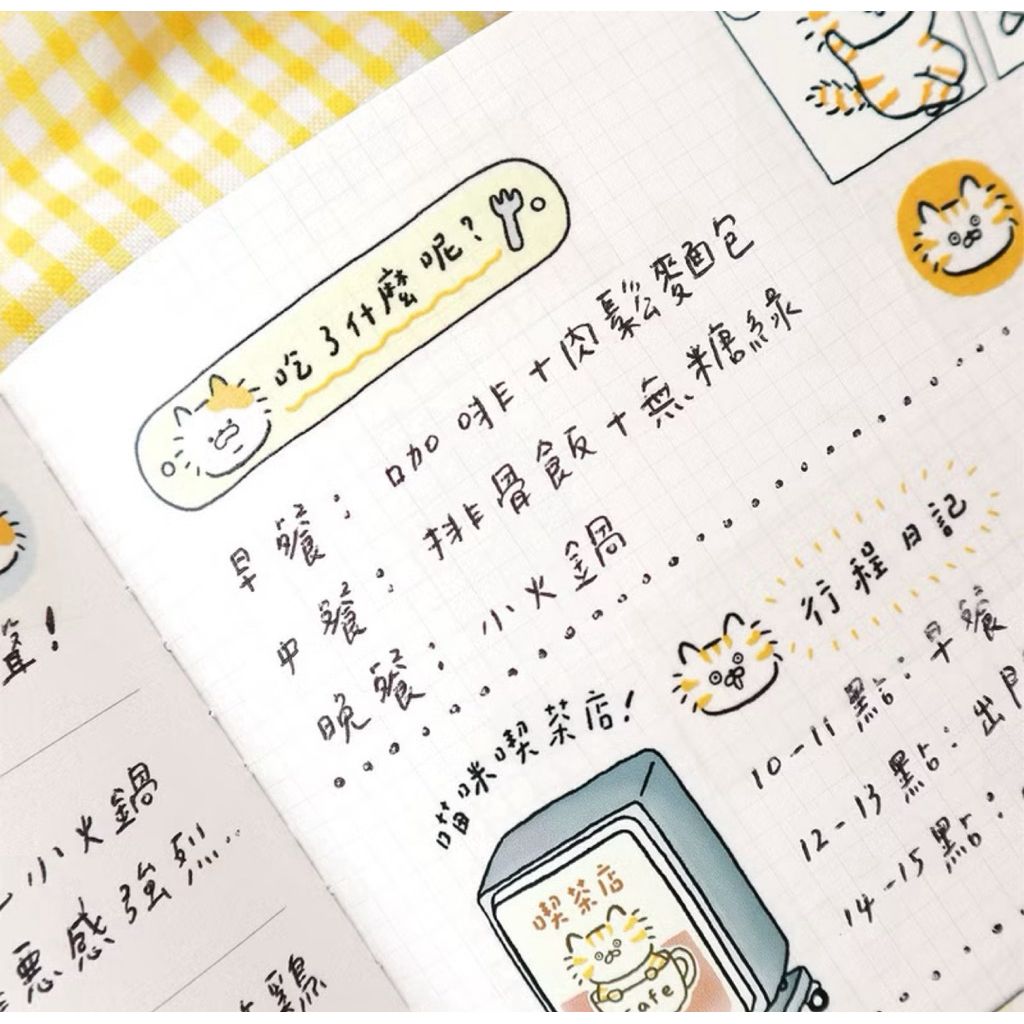 吃了什麼呢?
早餐: 咖啡+肉鬆麥面包
中餐: 排骨飯+無糖綠
晚餐: 小火鍋
行程日記
10-11點: 早餐
12-13點: 出門
14-15點:
喵咪喫茶店!
喫茶店
Cafe
小火鍋
惡感強烈..